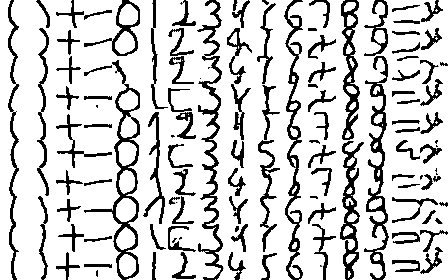 ( ) + - 0 1 2 3 4 5 6 7 8 9 =
( ) + - 0 1 2 3 4 5 6 7 8 9
( ) + - 1 2 3 4 6 7 8 9
( ) + - 0 1 3 4 6 7 8 9
( ) + - 0 1 2 3 4 6 7 8 9 =
( ) + - 0 1 3 4 5 6 7 8 9
( ) + - 0 1 2 3 4 5 6 7 8 9 =
( ) + - 0 1 2 3 4 5 6 7 8 9
( ) + - 0 1 3 4 5 6 7 8 9
( ) + - 0 1 2 3 4 5 6 7 8 9 =